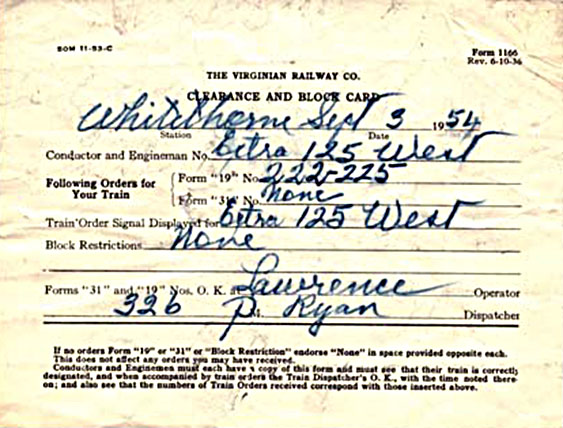 BOM 11-53-C
Form 1166
Rev. 6-10-36
THE VIRGINIAN RAILWAY CO.
CLEARANCE AND BLOCK CARD
Whitethorne Sept 3 1954
Station Date
Conductor and Engineman No. Extra 125 West
Following Orders for Your Train
Form "19" No. 222-225
Form "31" No. None
Train Order Signal Displayed for Extra 125 West
Block Restrictions None
Forms "31" and "19" Nos. O. K. at Lawrence Operator
326 P. M. Ryan Dispatcher
If no orders Form "19" or "31" or "Block Restriction" endorse "None" in space provided opposite each.
This does not affect any orders you may have received.
Conductors and Enginemen must each have a copy of this form and must see that their train is correctly
designated, and when accompanied by train orders the Train Dispatcher's O. K., with the time noted there-
on; and also see that the numbers of Train Orders received correspond with those inserted above.